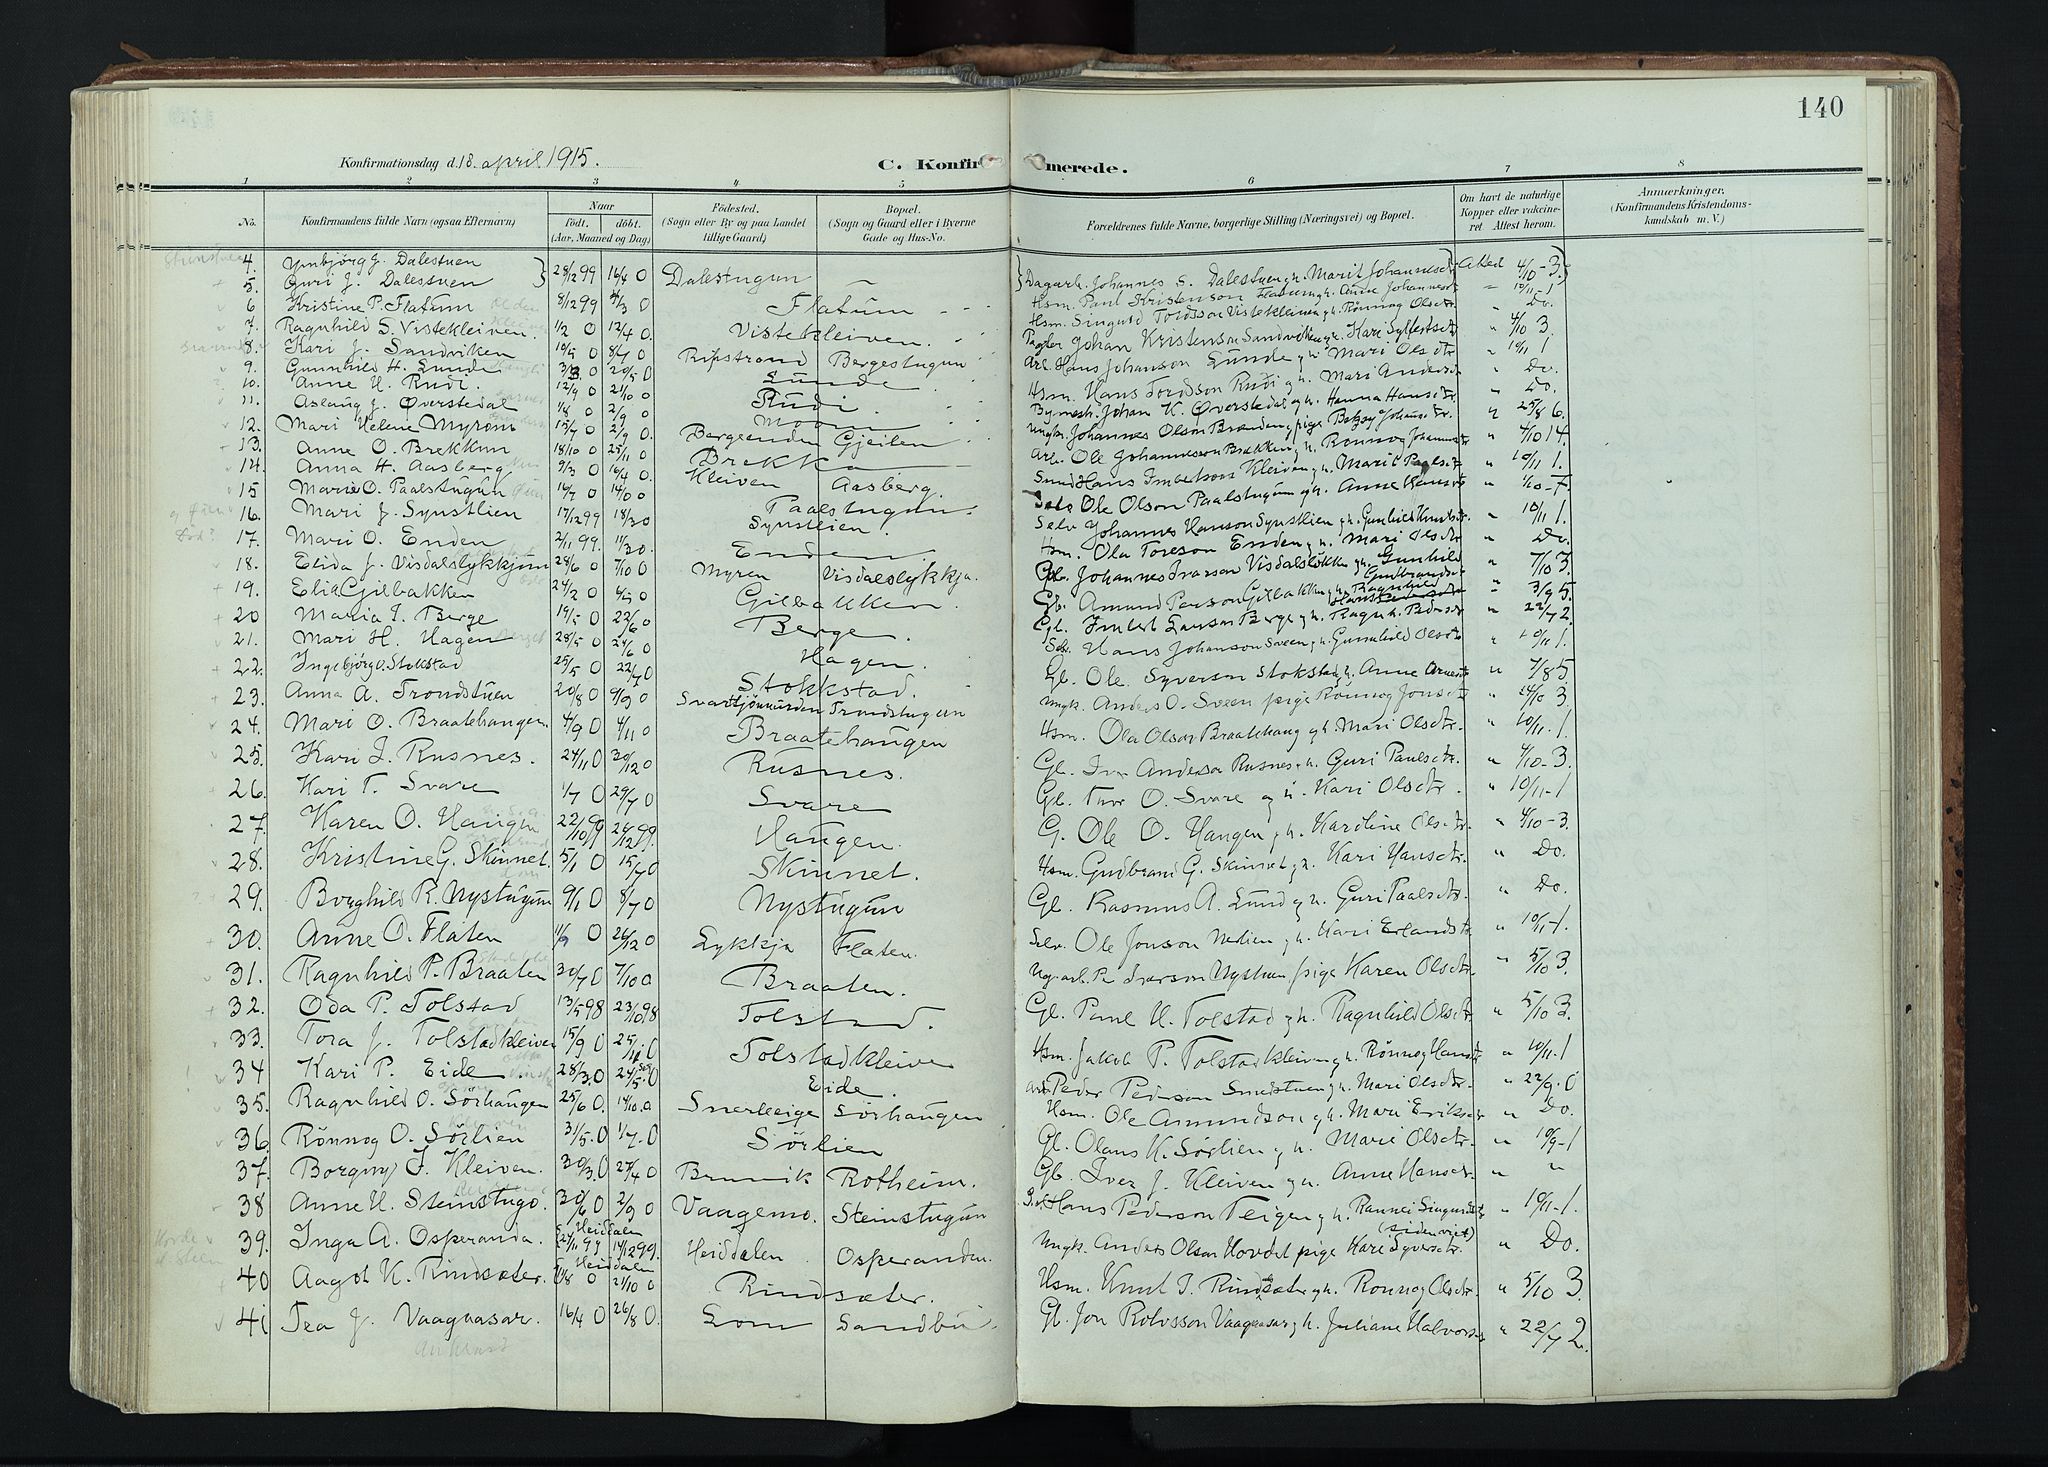 140
Konfirmationsdag d. 18. april 1915.
C. Konfirmerede.
1 2 3 4 5 6 7 8
No. Konfirmandens fulde Navn (ogsaa Efternavn) Naar født. døbt. (Aar, Maaned og Dag) Fødested. (Sogn eller By og paa Landet tillige Gaard) Bopæl. (Sogn og Gaard eller i Byerne Gade og Hus-No. Forældrenes fulde Navne, borgerlige Stilling (Næringsvei) og Bopæl. Om havt de naturlige Kopper eller vaccineret Attest herom. Anmærkninger. (Konfirmandens Kristendomskundskab m. V.)
4. Ymbjørg J. Dalestuen 28/12 99 16/4 0 Dalestugun Dagarb. Johannes S. Dalestuen g. h. Marit Johannesdtr Attest 4/10-3.
5. Guri J. Dalestuen
6 Kristine P. Flatum 8/12 99 4/3 0 Flatum Hsm. Paul Kristenson Flatum g. h. Anne Johannesdtr " 10/11-1
7. Ragnhild S. Vistekleiven. 1/2 0 12/4 0. Vistekleiven. Hsm. Singurd Tordsson Vistekleiven g. h. Rønnog Olsdtr. " Do.
8. Kari J. Sandviken 10/5 0 8/7 0 Ripstrand Bergestugun Johan Kristenson Sandviken g. h. Kari Sylfestsdtr " 4/10 3.
9. Gunnhild H. Sunde 3/3 0 20/5 0 Sunde Arb. Hans Johanson Sunde g. h. Mari Olsdtr " 10/11 1
10. Anne H. Rudi. 12/9 0 21/10 0 Rudi. Hsm. Hans Tordson Rudi g. h. Mari Andersd " Do.
11. Aslaug J. Øverstedal 1/8 0 2/9 0 Moom Johan K. Øverstedal g. h. Hanna Hansdtr " Do.
12. Mari Helene Myrom 15/7 0 2/9 0. Bergeenden Gjeilen Ungk. Johannes Olson Brænden, pige " 25/8 6.
13. Anne O. Brekkun 18/10 0 25/11 0 Brekka Arb. Ole Johannesson Brækken g. h. Rønnog Johannesdtr " 4/10 14.
14. Anna H. Aasberg 9/3 0 16/4 0 Kleiven Aasberg. Hans Imbertson Kleiven g. h. Marit Paalsdtr " 10/11 1.
15 Marie O. Paalstugun 16/7 0 Paalstugun. Selv Ole Olson Paalstugun g. h. Anne Hansdtr "
16. Mari J. Synstlien 17/12 99 18/3 0 Synstlien. Selv. Johannes Hanson Synstlien g. h. Gunhild Knutsdtr. " 10/11 1.
17. Mari O. Enden 2/11 99. 11/3 0. Enden Hsm. Ola Toreson Enden g. h. Mari Olsdtr " Do.
18. Elida J. Visdalslykkjun 28/6 0 7/10 0 Myren Visdalslykkja. Johannes Ivarson Visdalsløkken g. h. Gunhild Gudbrandsd. " 7/10 3.
19. Elia Gilbakken 24/2 0 Gilbakken Gb. Amund Person Gilbakken g. h. Ragnhild " 3/9 5.
20 Maria I. Berge 19/5 0 22/6 0 Berge. Gl. Imbert Larson Berge g. h. Ragnh. Pedersdtr " 22/7 2.
21. Mari H. Hagen 28/5 0 24/6 0 Hagen. Selv. Hans Johanson Sveen g. h. Gunnhild Olsdtr " 10/11 1.
22. Ingebjørg O. Stokstad 25/5 0 22/7 0 Stokkstad. Gl. Ole Syverson Stokstad g. h. Anne Arnesdtr " 7/8 5.
23. Anna A. Trondstuen 20/8 0 9/9 0 Trondstugun Ungk. Anders O. Sveen pige Rønnog Jonsdtr " 24/10 3
24. Mari O. Braatehaugen. 4/9 0 4/11 0 Braatehaugen Hsm. Ola Olson Braatehaug g. h. Mari Olsdtr. " 10/11. 1.
25. Kari I. Rusnes. 24/11 0 30/12 0 Rusnes. Gl. Iver Anderson Rusnes g. h. Guri Paulsdtr. " 4/10-3.
26. Kari T. Svare 1/7 0 29/7 0 Svare Gl. Thor O. Svare og h. Kari Olsdtr. " 10/11-1
27. Karen O. Haugen 22/10 99 26/12 99. Haugen. G. Ole O. Haugen g. h. Karoline Olsdtr. " 4/10-3.
28. Kristine G. Skinnet. 5/1 0 15/7 0 Skinnet. Hsm. Gudbrand G. Skinnet g. h. Kari Hansdtr. " Do.
29. Borghild R. Nystugun 9/1 0 8/7 0 Nystugun Gl. Rasmus A. Lund g. h. Guri Paalsdtr. " Do.
30. Anne O. Flaten 11/9 0 26/12 0 Lykkja Flaten. Selv. Ole Jonson Nedlien g. h. Kari Erlandsdtr " 10/11-1.
31. Ragnhild P. Braaten 30/7 0 7/10 0 Braaten. Ung. arb. P. Ivarson Nystuen, pige Karen Olsdtr. " 5/10 3.
32. Oda P. Tolstad 13/5 98 23/10 98 Tolstad. Gl. Paul H. Tolstad g. h. Ragnhild Olsdtr. " 5/10 3.
33. Tora J. Tolstadkleiven 15/9 0 25/11 0 Tolstadkleive Hsm. Jakob P. Tolstadkleiven g. h. Rønnog Hansdtr " 10/11-1
34 Kari P. Eide. 28/3. 0 24/5. 0 Eide. Arb. Peder Pederson Smedstuen g. h. Mari Olsdtr. " 22/9. 0
35. Ragnhild O. Sørhaugen 25/6 0. 14/10. 0 Snerleeige Sørhaugen Hsm. Ole Amundson g. h. Mari Eriksd " Do.
36. Rønnog O. Sørlien 31/5. 0 1/7. 0 Sørlien Gl. Olaus K. Sørlien g. h. Marie Olsdtr. " 10/9-1
37. Borgny I. Kleiven. 30/3. 0 27/4 0 Brunvik Rotheim. Gb. Iver J. Kleiven g. h. Anne Hansdtr. " "
38 Anne H. Steinstugo. 30/6 0 2/9 0 Vaagemo. Steinstugun Hans Pederson Teigen g. h. Rannei Singurdsdtr " 10/11-1.
39. Inga A. Osperanda. Heiddalen 24/11 99 17/12 99. Heiddalen Osperanden. Ungk. Anders Olson Hovdet pige Kari Syversdtr. (siden viet) " Do.
40 Aagot K. Rindsæter. Heidalen 11/8 0 21/10 0 Rindsæter. Hsm. Knut I. Rindsæter g. h. Rønnog Olsdtr. " 5/10 3.
41 Tea J. Vaagaasar. 16/4 0 26/8 0. Lom Sandbu. Gl. Jon Rolvsson Vaagaasar g. h. Juliane Halvorsd " 22/7 2.